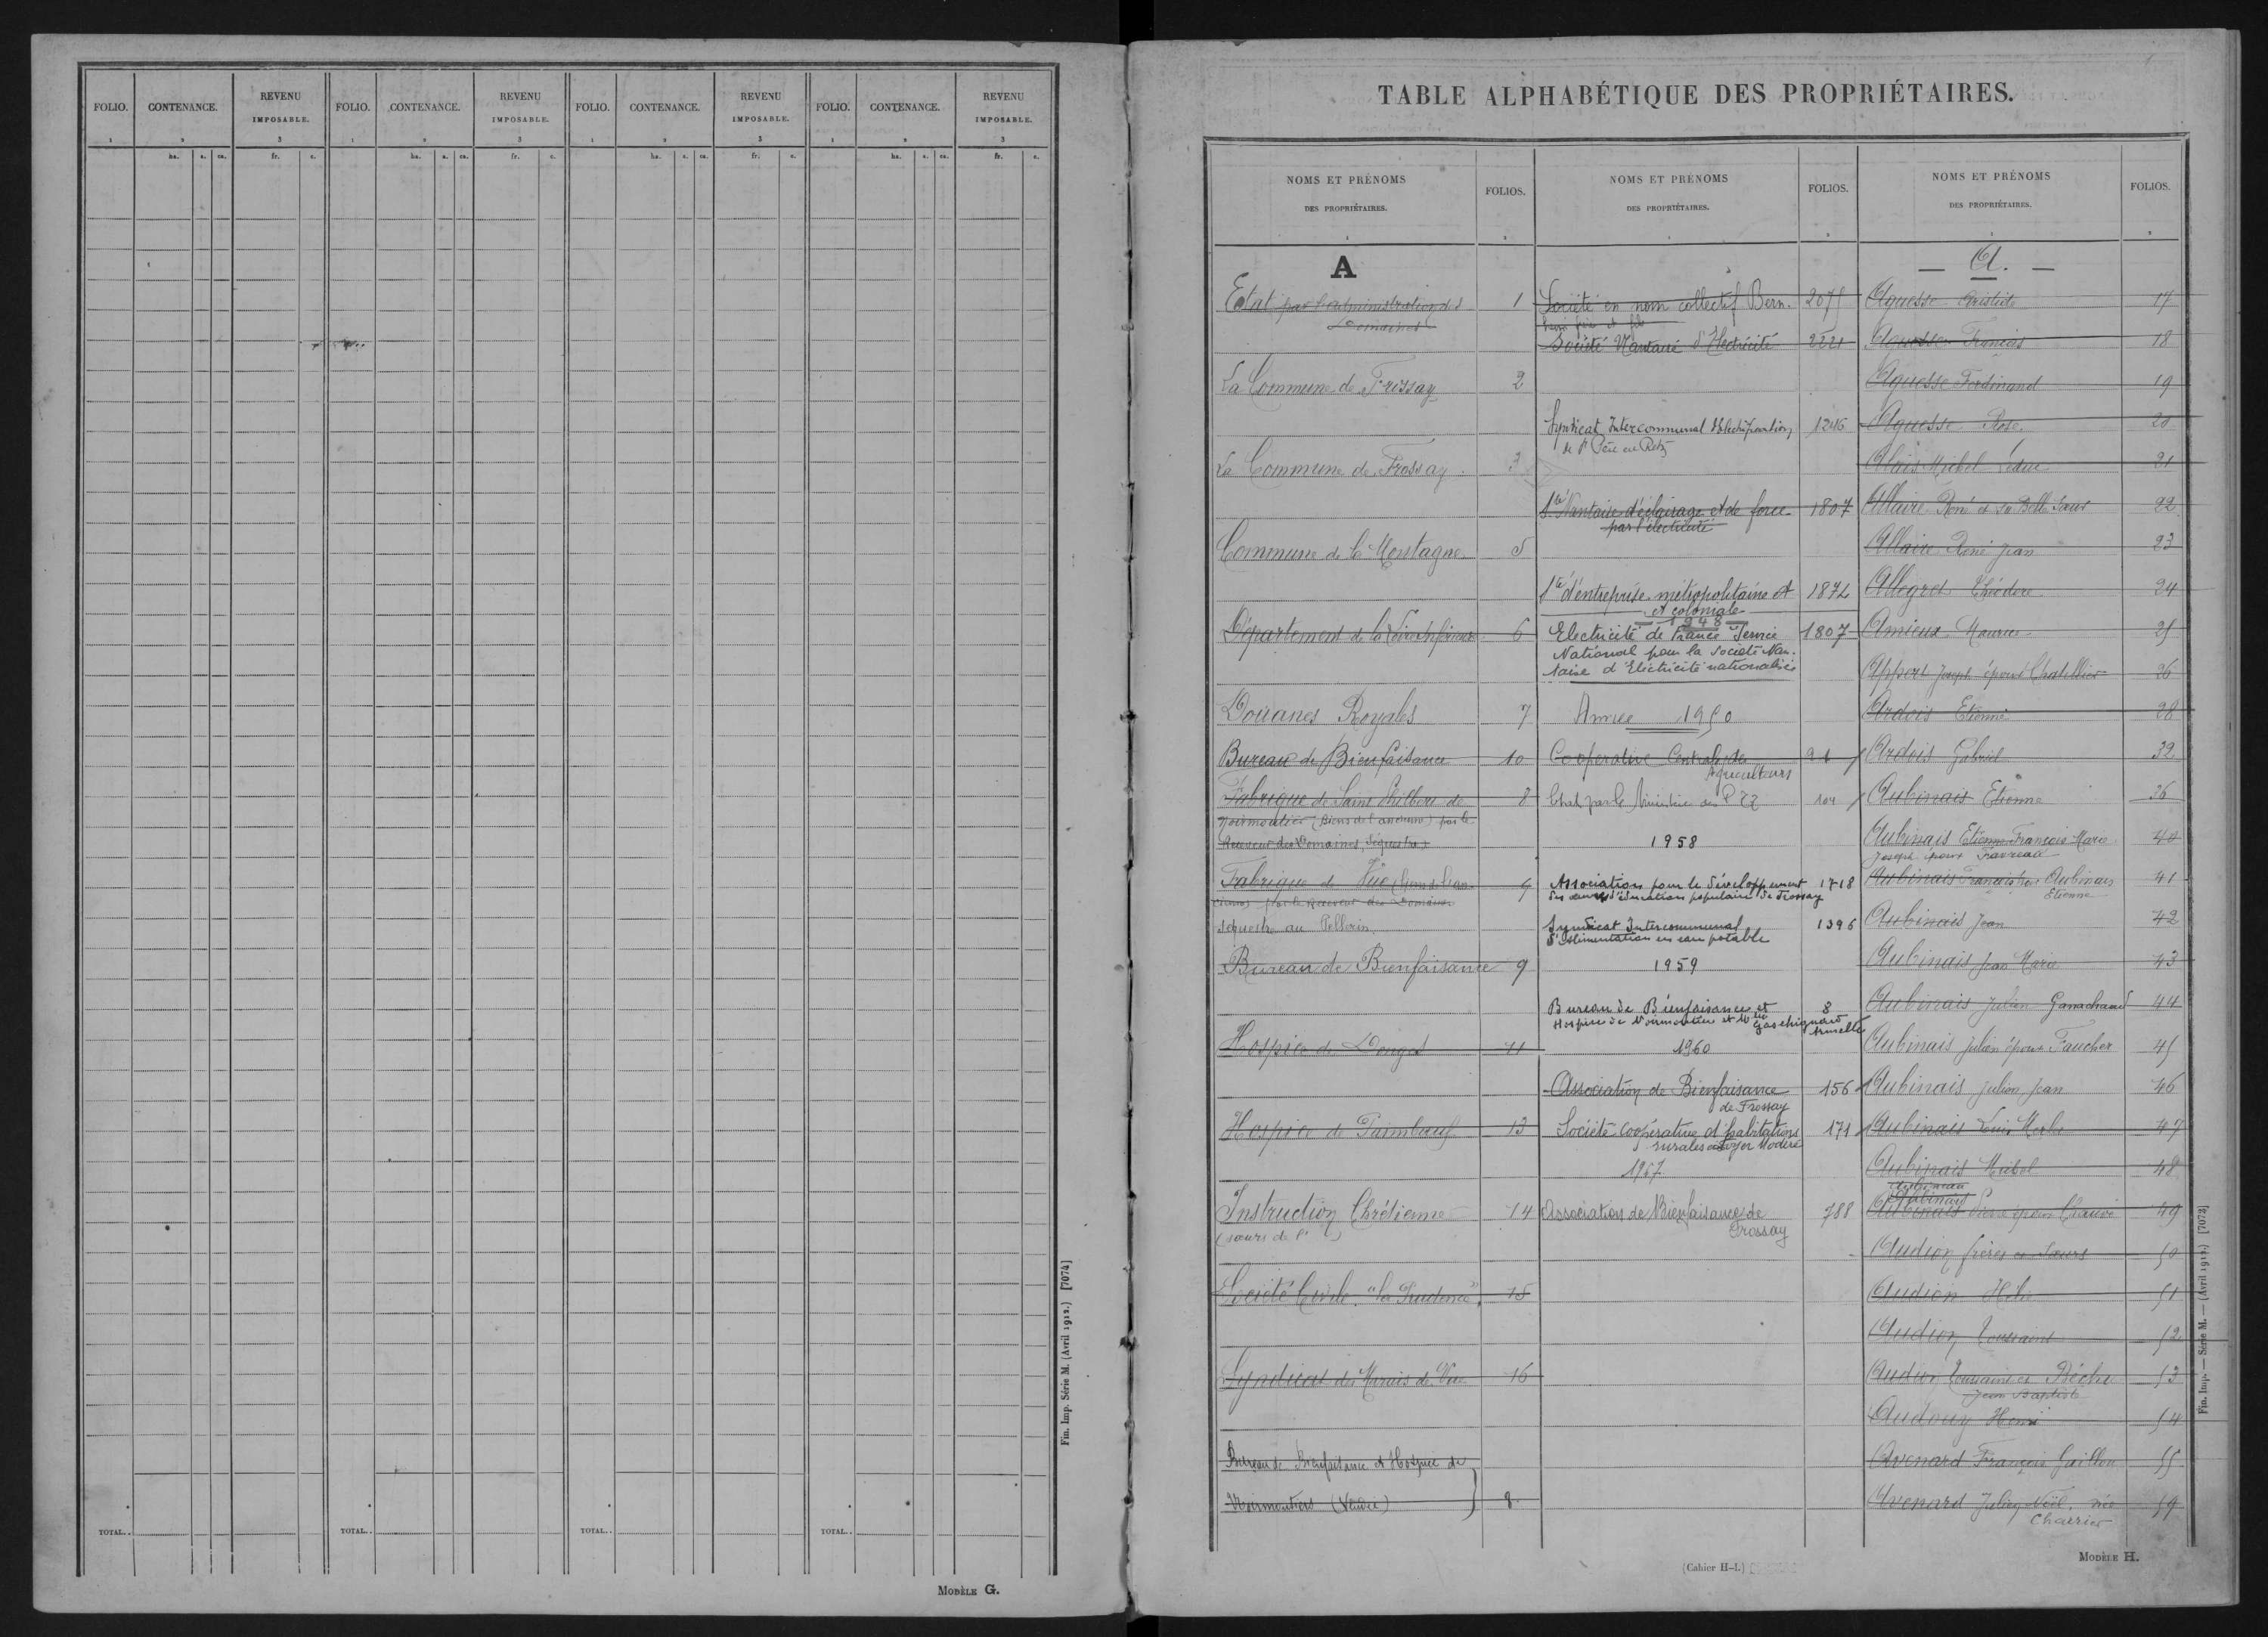 FOLIO. CONTENANCE. REVENU IMPOSABLE. FOLIO. CONTENANCE. REVENU IMPOSABLE. FOLIO. CONTENANCE. REVENU IMPOSABLE. FOLIO. CONTENANCE. REVENU IMPOSABLE.
1 2 3 1 2 3 1 2 3 1 2 3
ha. a. ca. fr. c. ha. a. ca. fr. c. ha. a. ca. fr. c. ha. a. ca. fr. c.
TOTAL.. TOTAL.. TOTAL.. TOTAL..
Fin. Imp. Série M. (Avril 1912.) [7074]
MODÈLE G.
TABLE ALPHABÉTIQUE DES PROPRIÉTAIRES.
NOMS ET PRÉNOMS
DES PROPRIÉTAIRES.
FOLIOS.
A
Etat par l'administration des 1
Domaines
La Commune de Frossay 2
La Commune de Frossay 3
Commune de la Montagne 5
Département de la Loire Inférieure 6
Douanes Royales 7
Bureau de Bienfaisance 10
Fabrique de Saint Philbert de 8
Noirmoutier (Biens de l'ancienne) par le
Receveur des Domaines, Séquestre
Fabrique de Vue 9
par le Receveur des Domaines
séquestre au Pellerin
Bureau de Bienfaisance 9
Hospice de Donges 11
Hospice de Paimboeuf 13
Instruction Chrétienne 14
(soeurs de l')
Société Civile "la Prudence" 15
Syndicat des Marais de Vue 16
Bureau de Bienfaisance et Hospice de
Noirmoutiers (Vendée) 8
NOMS ET PRÉNOMS
DES PROPRIÉTAIRES.
FOLIOS.
Société en nom collectif Bern- 2075
père et fils
Société Nantaise d'Electricité 2221
Syndicat Intercommunal d'Electrification 1246
de St Père en Retz
Sté Nantaise d'éclairage et de force 1807
par l'électricité
Sté d'entreprise métropolitaine et 1872
et coloniale
1948
Electricité de France Service 1807
National pour la Société Nan-
taise d'Electricité nationalisée
Année 1950
Coopérative Centrale des 21
Agriculteurs
Etat par le Ministère des PTT 104
1958
Association pour le développement 1718
des oeuvres d'éducation populaire de Frossay
Syndicat Intercommunal 1396
d'Alimentation en eau potable
1959
Bureau de Bienfaisance et 8
Hospice de Noirmoutier et Gaschignard
1960
Association de Bienfaisance 156
de Frossay
Société coopérative d'habitations 171
rurales à Loyer Modéré
1967
Association de Bienfaisance de 788
Frossay
NOMS ET PRÉNOMS
DES PROPRIÉTAIRES.
FOLIOS.
— A. —
Aguesse Aristide 17
Aguesse François 18
Aguesse Ferdinand 19
Aguesse Rose 20
Alais Michel Leduc 21
Allaire René et Sa Belle Soeur 22
Allaire René Jean 23
Allegret Théodore 24
Amieux Maurice 25
Appert Joseph époux Chatellier 26
Ardois Etienne 28
Ardois Gabriel 32
Aubinais Etienne 36
Aubinais Etienne François Marie 40
Joseph époux Favreau
Aubinais François Aubinais 41
Etienne
Aubinais Jean 42
Aubinais Jean Marie 43
Aubinais Julien Ganachaud 44
Aubinais Julien époux Faucher 45
Aubinais Julien Jean 46
Aubinais Louis Merlet 47
Aubinais Michel 48
Aubinais
Aubinais Pierre époux Chauvé 49
Audion frères et Soeurs 50
Audion Hélie 51
Audion Toussaint 52
Audion Toussaint et Béche 53
Jean Baptiste
Audouy Henri 54
Avenard François Guillou 55
Avenard Julien Noël, née 59
Charrier
Fin. Imp. — Série M. — (Avril 1912.) [7073]
(Cahier H-I.)
MODÈLE H.